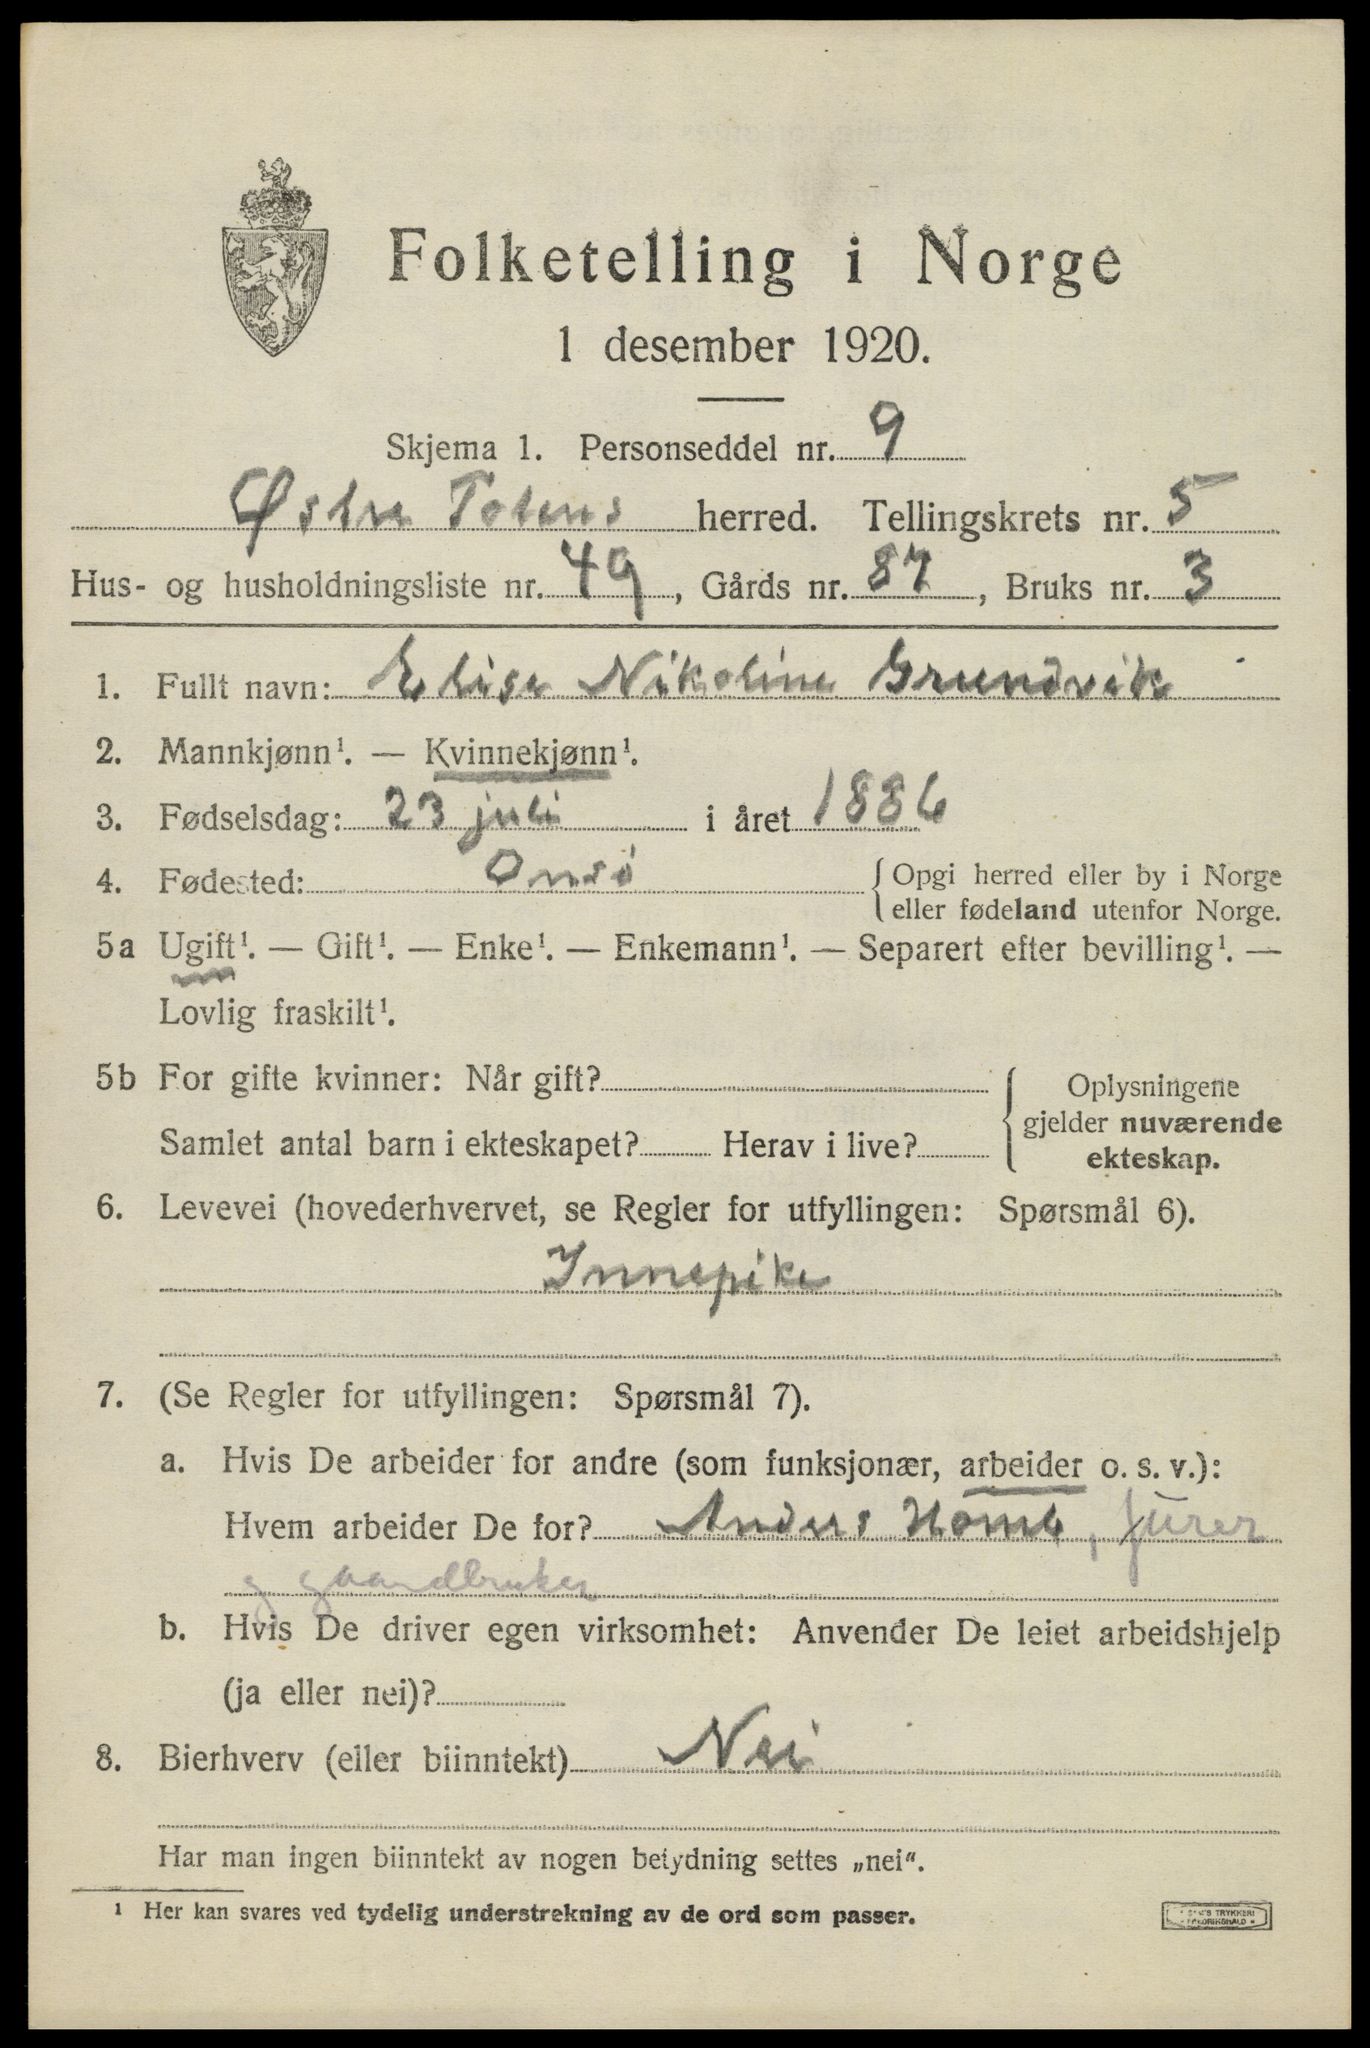 Folketelling i Norge
1 desember 1920.
Skjema 1. Personseddel nr. 9
Østre Totens herred. Tellingskrets nr. 5
Hus- og husholdningsliste nr. 49, Gårds nr. 87, Bruks nr. 3
1. Fullt navn: Elise Nikoline Grundvik
2. Mannkjønn¹. — Kvinnekjønn¹.
3. Fødselsdag: 23 juli i året 1886
4. Fødested: Onsö { Opgi herred eller by i Norge
eller fødeland utenfor Norge.
5a Ugift¹. — Gift¹. — Enke¹. — Enkemann¹. — Separert efter bevilling¹. —
Lovlig fraskilt¹.
5b For gifte kvinner: Når gift?
Samlet antal barn i ekteskapet? Herav i live?
{ Oplysningene
gjelder nuværende
ekteskap.
6. Levevei (hovederhvervet, se Regler for utfyllingen: Spørsmål 6).
Innepike
7. (Se Regler for utfyllingen: Spørsmål 7).
a. Hvis De arbeider for andre (som funksjonær, arbeider o. s. v.):
Hvem arbeider De for? Anders Homb,
gaardbruker
b. Hvis De driver egen virksomhet: Anvender De leiet arbeidshjelp
(ja eller nei)?
8. Bierhverv (eller biinntekt) Nei
Har man ingen biinntekt av nogen betydning settes „nei".
¹ Her kan svares ved tydelig understrekning av de ord som passer.
TRYKKERI
FREDRIKSHALD